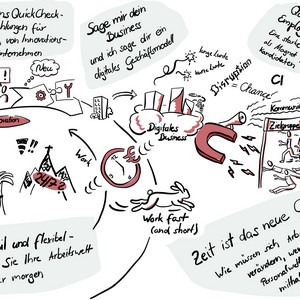 ns QuickCheck-
hlungen für
von Innovations-
nternehmen
Neu
ovation
Sage mir dein
Business
und ich sage dir ein
digitales Geschäftsmodell
lange Leute
kurze Leute
Disruption
= Chance!
Digitales
Business
CI
Kommuni
Zielgruppe
24/7?
Work fast
(and short)
il und flexibel-
Sie Ihre Arbeitswelt
er morgen
Zeit ist das neue
Wie müssen sich Arbei
verändern, we
Personalwett
mitha